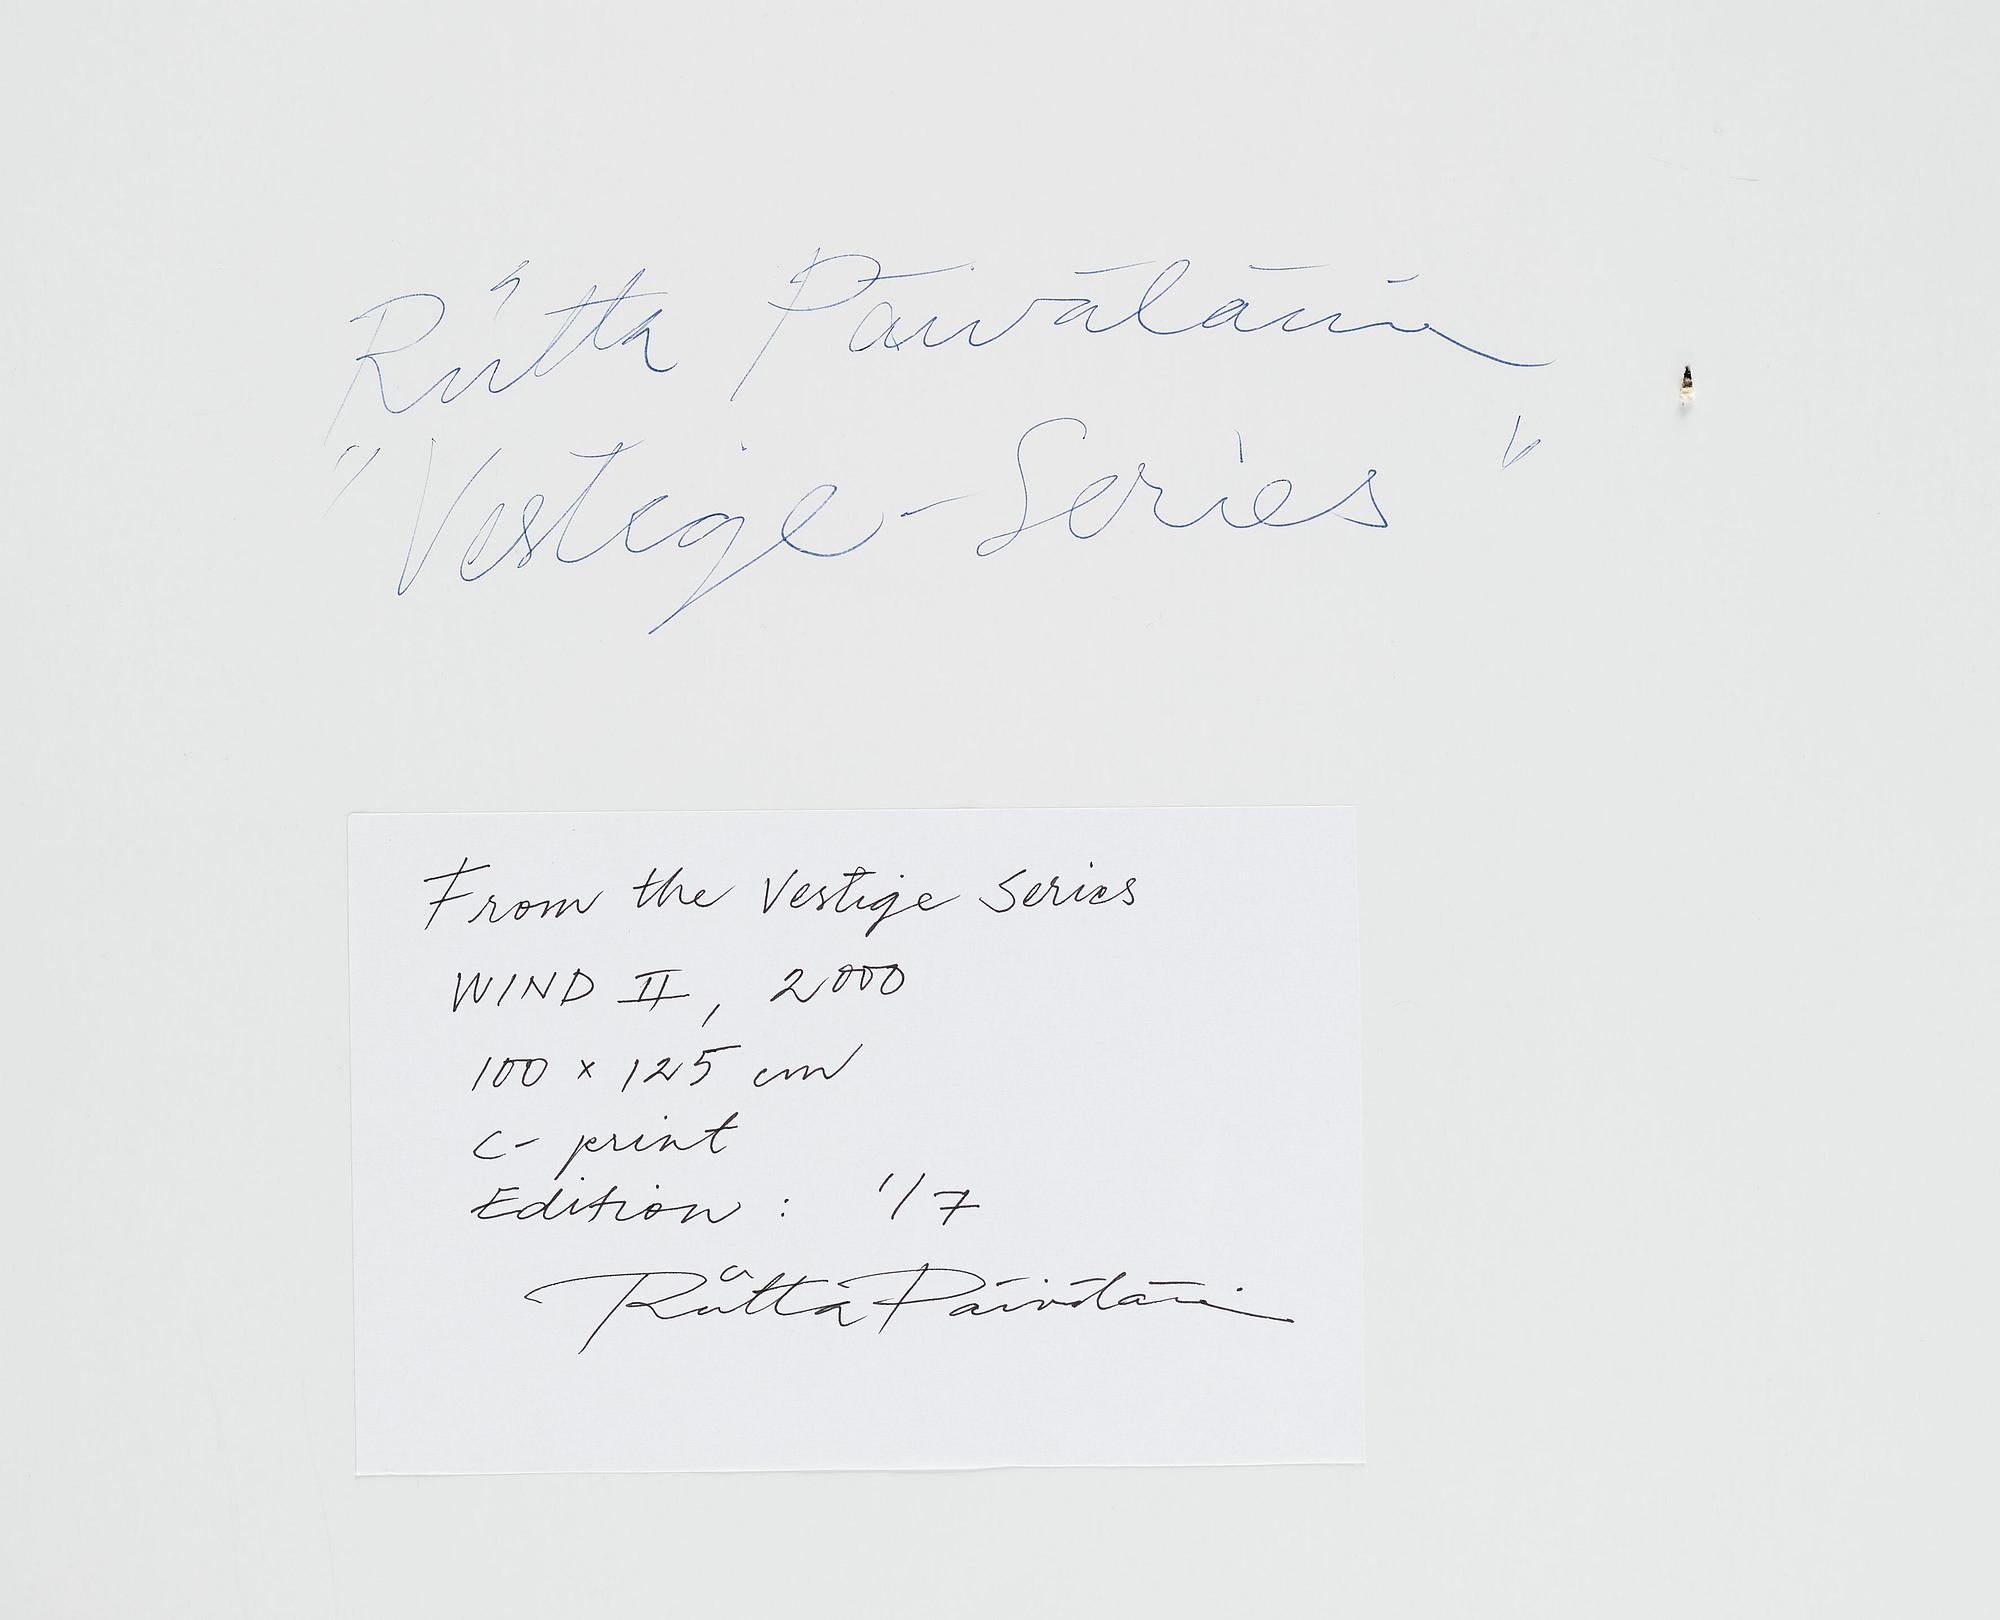 Riitta Päiväläinen
"Vestige-Series"
From the Vestige Series
WIND II, 2000
100 x 125 cm
c- print
Edition : 1/7
Riitta Päiväläinen